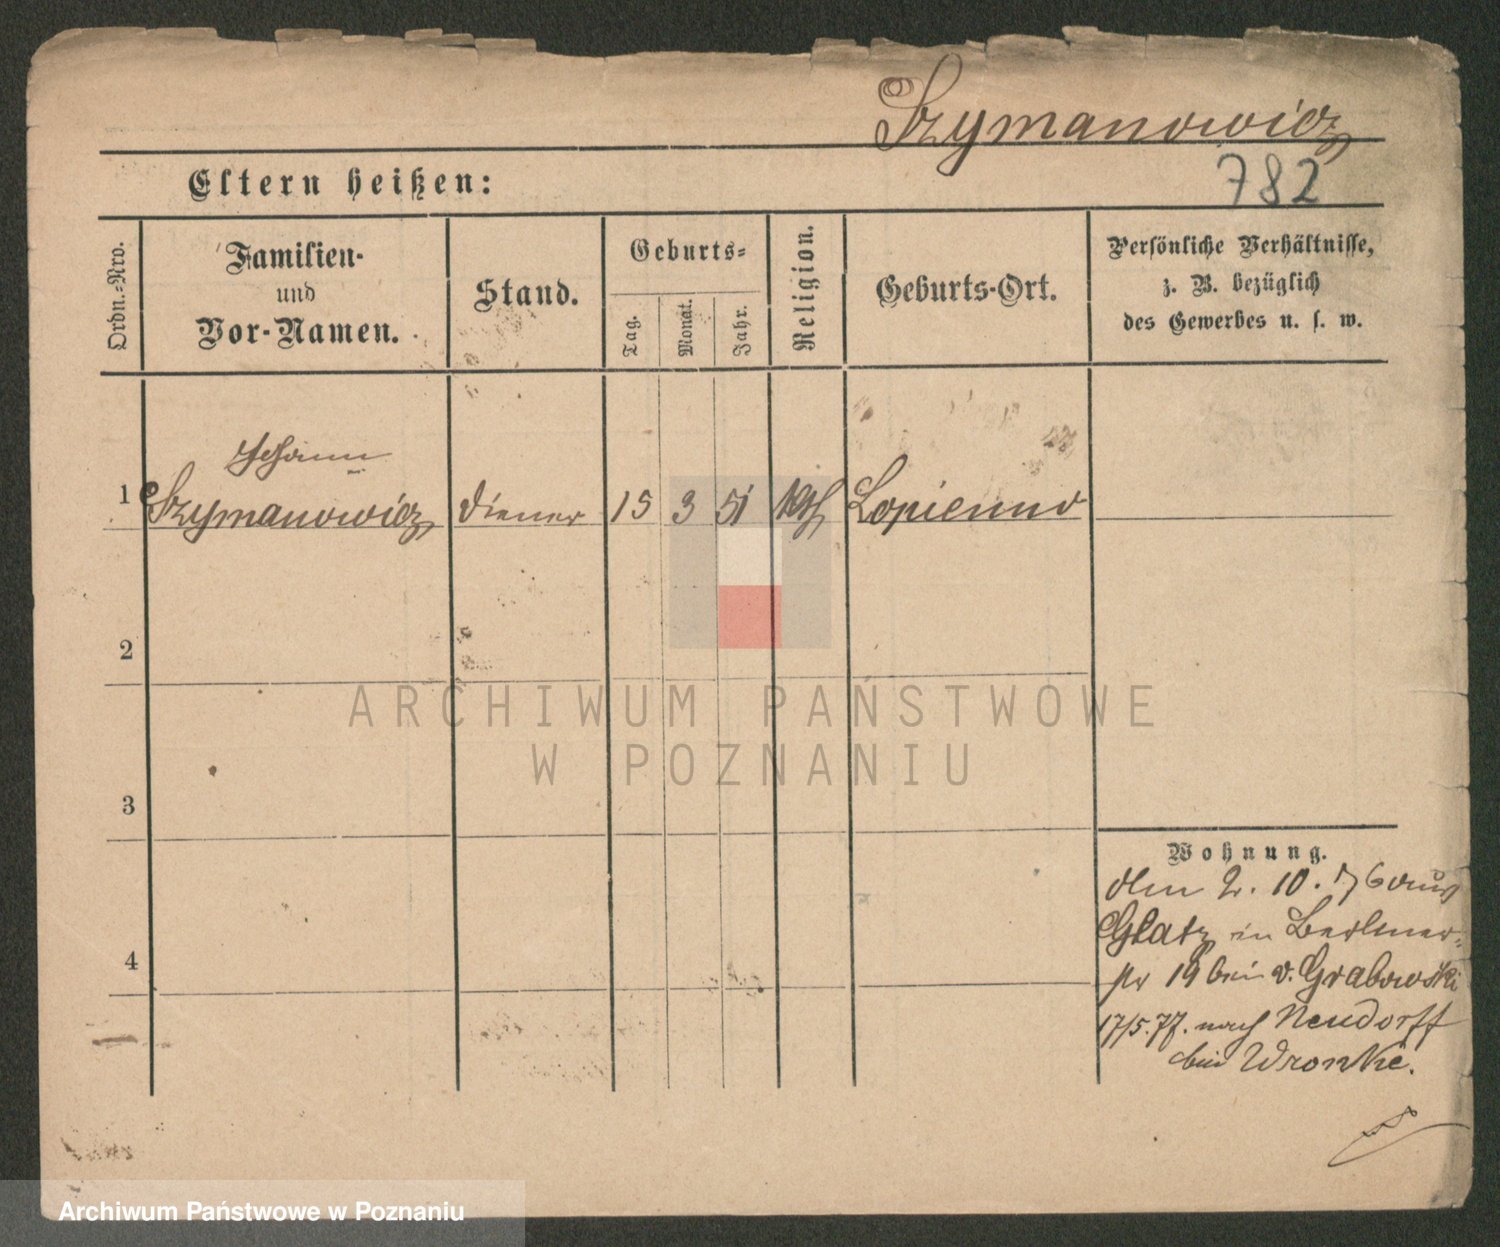 Szymanowicz
782
Eltern heißen:
Ordn.-Nro.
Familien-
und
Vor-Namen.
Stand.
Geburts-
Tag.
Monat.
Jahr.
Religion.
Geburts-Ort.
Persönliche Verhältnisse,
z. B. bezüglich
des Gewerbes u. s. w.
Johann
1 Szymanowicz Diener 15 3 51 kth Lopienno
2
3
4
Wohnung.
Am 2. 10. 76 aus
Glatz in Berliner-
str 19 bei v. Grabowski
17/5.77. nach Neudorff
bei Wronke.
ARCHIWUM PAŃSTWOWE
W POZNANIU
Archiwum Państwowe w Poznaniu